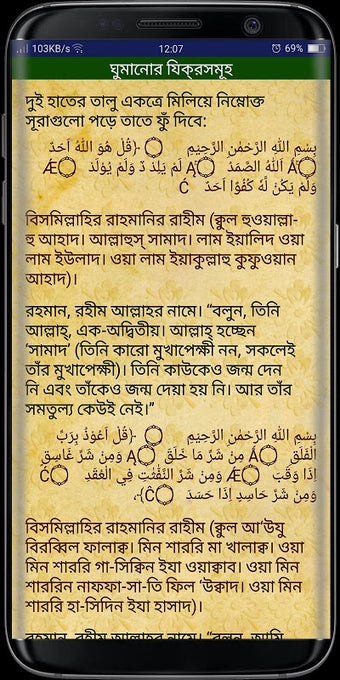 103KB/s 12:07 69%
ঘুমানোর যিক্‌রসমূহ
দুই হাতের তালু একত্রে মিলিয়ে নিম্নোক্ত
সূরাগুলো পড়ে তাতে ফুঁ দিবে:
بِسْمِ اللَّهِ الرَّحْمٰنِ الرَّحِيْمِ ﴿قُلْ هُوَ اللّٰهُ اَحَدٌ
Á اَللّٰهُ الصَّمَدُ Ä لَمْ يَلِدْ ڏ وَلَمْ يُوْلَدْ Æ
وَلَمْ يَكُنْ لَّهٗ كُفُوًا اَحَدٌ Ć
বিসমিল্লাহির রাহমানির রাহীম (ক্বুল হুওয়াল্লা-
হু আহাদ। আল্লাহুস্ সামাদ। লাম ইয়ালিদ ওয়া
লাম ইউলাদ। ওয়া লাম ইয়াকুল্লাহু কুফুওয়ান
আহাদ)।
রহমান, রহীম আল্লাহর নামে। “বলুন, তিনি
আল্লাহ্, এক-অদ্বিতীয়। আল্লাহ্ হচ্ছেন
‘সামাদ’ (তিনি কারো মুখাপেক্ষী নন, সকলেই
তাঁর মুখাপেক্ষী)। তিনি কাউকেও জন্ম দেন
নি এবং তাঁকেও জন্ম দেয়া হয় নি। আর তাঁর
সমতুল্য কেউই নেই।”
بِسْمِ اللَّهِ الرَّحْمٰنِ الرَّحِيْمِ ﴿قُلْ اَعُوْذُ بِرَبِّ
الْفَلَقِ Á مِنْ شَرِّ مَا خَلَقَ Ą وَمِنْ شَرِّ غَاسِقٍ
اِذَا وَقَبَ Æ وَمِنْ شَرِّ النَّفّٰثٰتِ فِي الْعُقَدِ Ć
وَمِنْ شَرِّ حَاسِدٍ اِذَا حَسَدَ Ĉ﴾.
বিসমিল্লাহির রাহমানির রাহীম (ক্বুল আ‘উযু
বিরব্বিল ফালাক্ব। মিন শাররি মা খালাক্ব। ওয়া
মিন শাররি গা-সিক্বিন ইযা ওয়াক্বাব। ওয়া মিন
শাররিন নাফফা-সা-তি ফিল ‘উক্বাদ। ওয়া মিন
শাররি হা-সিদিন ইযা হাসাদ)।
রহমান, রহীম আল্লাহর নামে। “বলুন, আমি